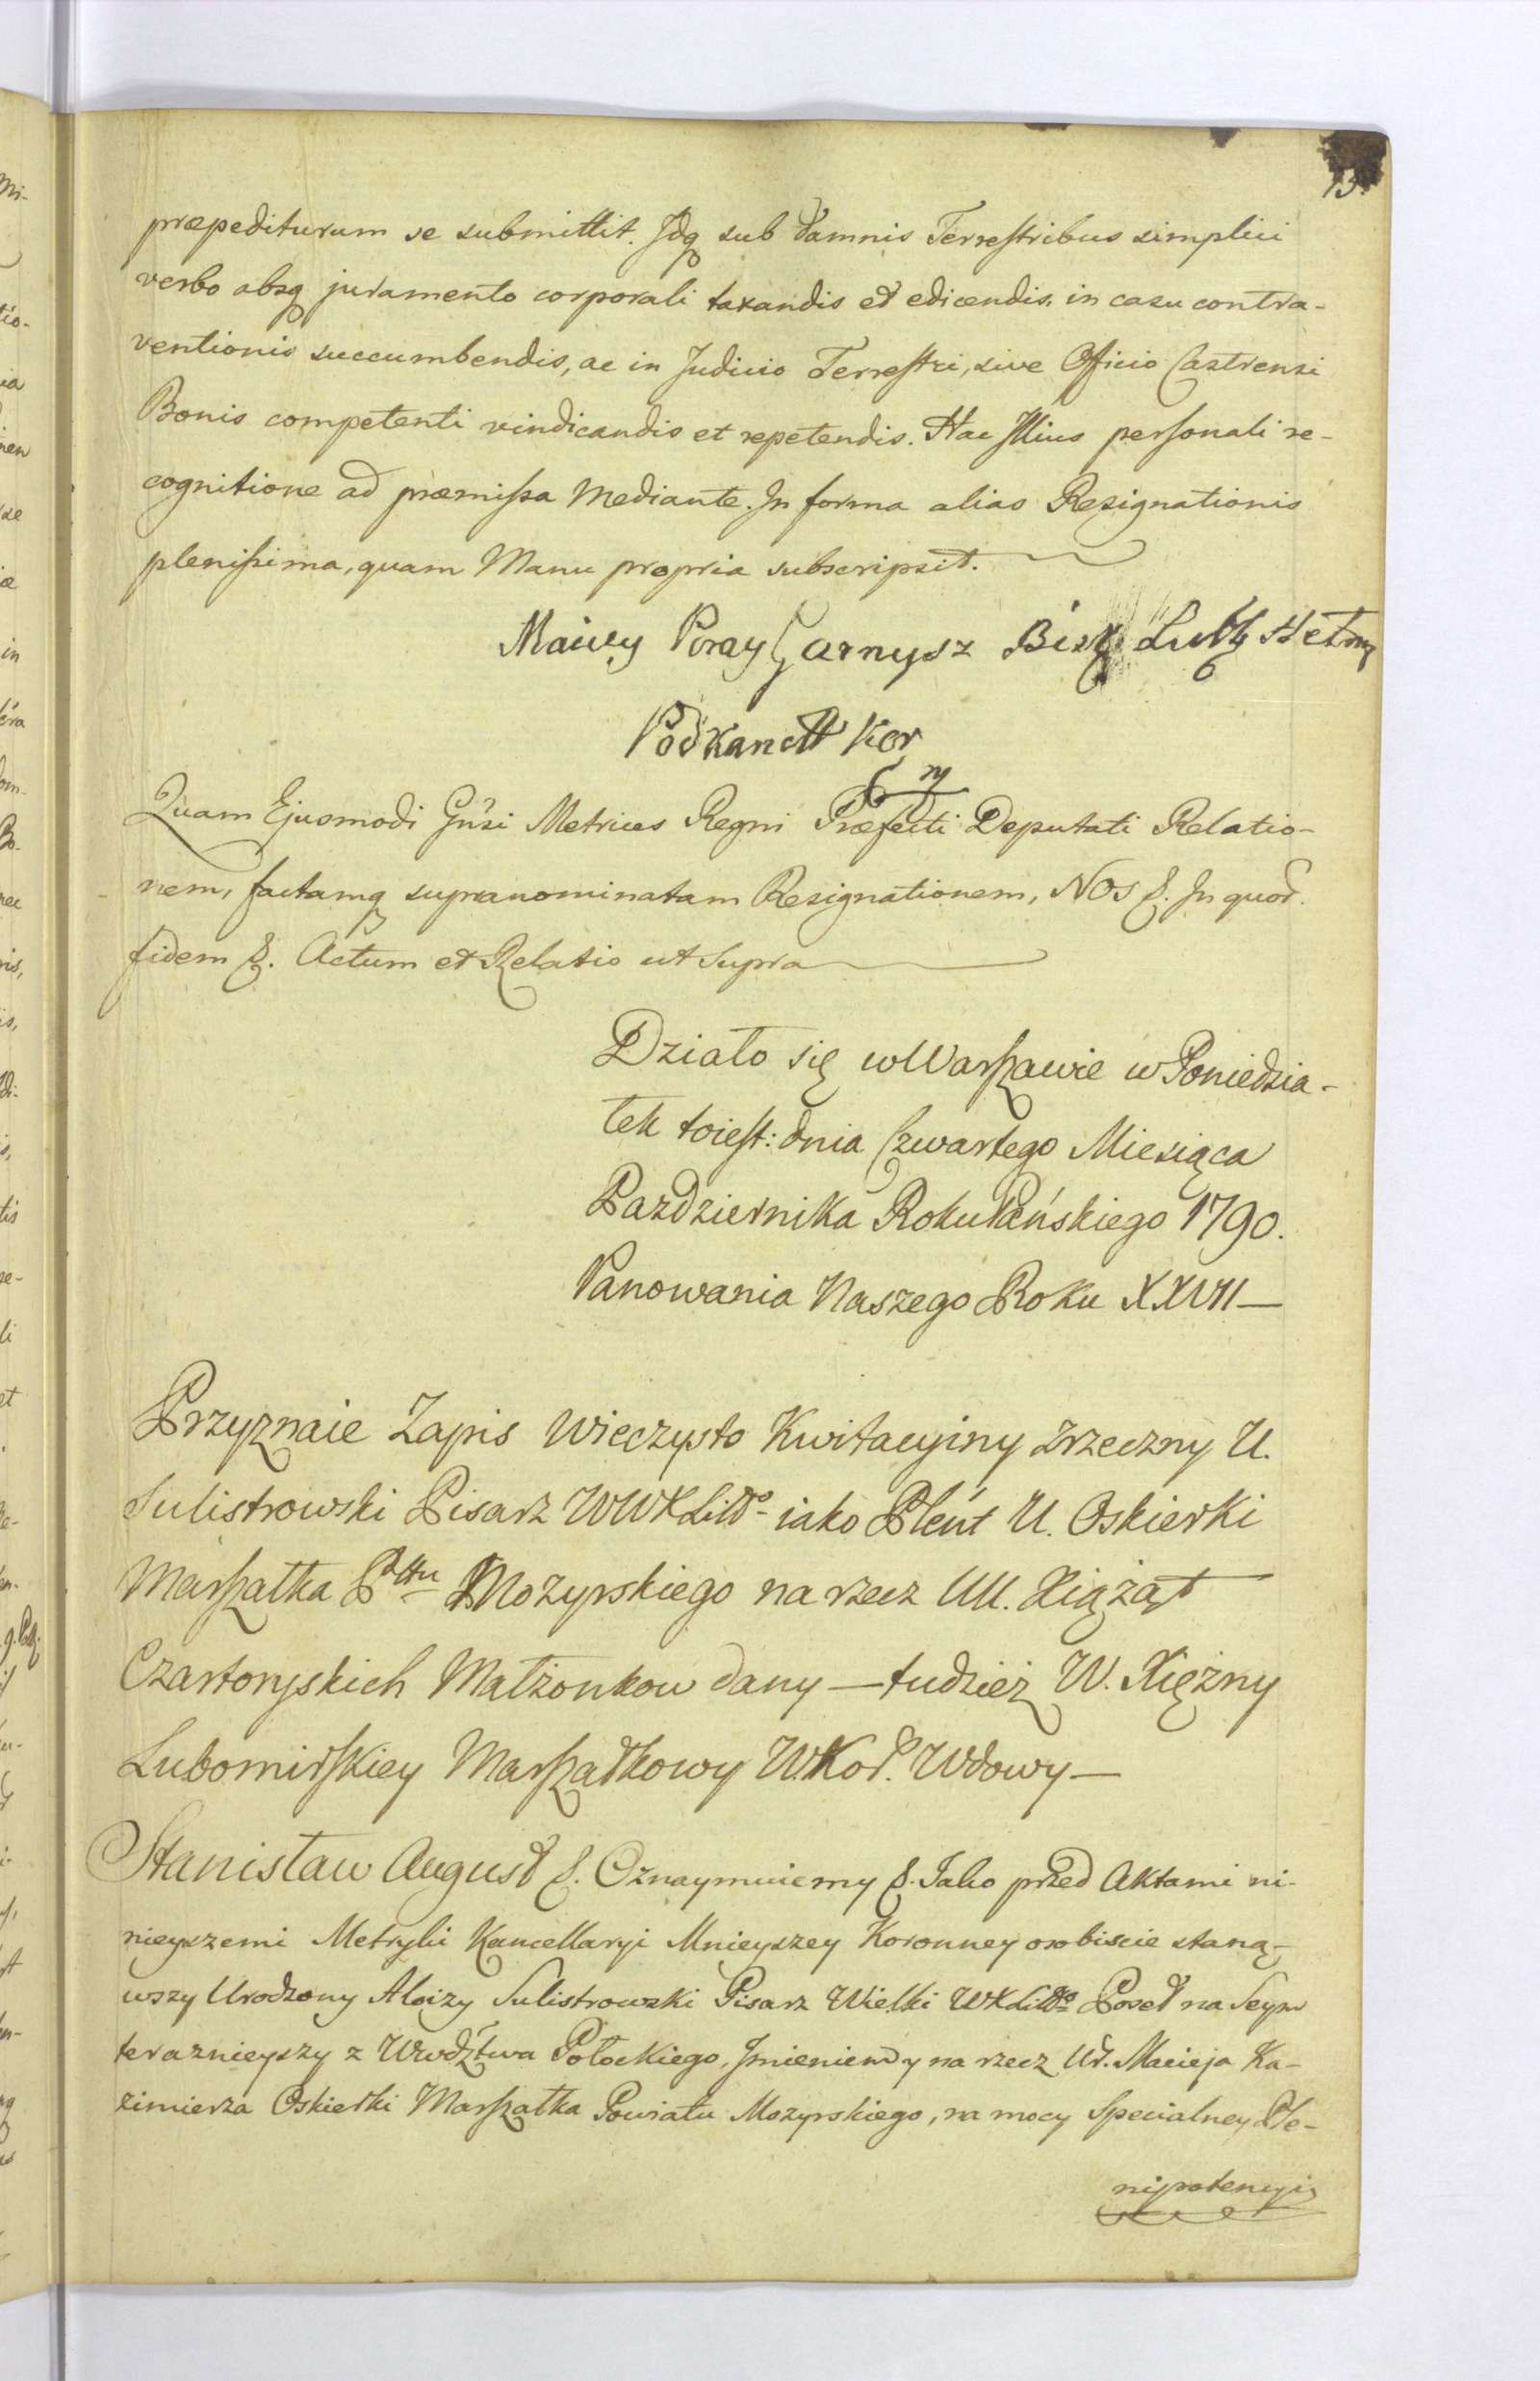 13.
præpediturum se submittit. Idq sub damnis Terrestribus simplici
verbo absq juramento corporali taxandis et edicendis. in casu contra-
ventionis succumbendis, ac in Judicio Terrestri, sive Officio Castrensi
Bonis competenti vindicandis et repetendis. Hac Illius personali re-
cognitione ad præmissa Mediante. In forma alias Resignationis
plenissima, quam Manu propria subscripsit.
Maciey Poray Garnysz Bisk Lub Hełm
Podkancll Kor
ny
Quam Ejusmodi Gnsi Metrices Regni Præfecti Deputati Relatio-
nem, factamq supranominatam Resignationem, NOS &. In quor.
fidem &. Actum et Relatio ut Supra
Działo się w Warszawie w Poniedzia-
łek toiest: dnia Czwartego Miesiąca
Pazdziernika Roku Pańskiego 1790.
Panowania Naszego Roku XXVII—
Przyznaie Zapis Wieczysto Kwitacyiny Zrzeczny U.
Sulistrowski Pisarz WWXLitto iako Plent U. Oskierki
Marszałka Pttu Mozyrskiego na rzecz UU. Xiążąt
Czartoryskich Małżonkow dany — tudzież W. Xiężny
Lubomirskiey Marszałkowy W. Kor. Wdowy—
Stanisław August &. Oznaymuiemy &. Jako przed Aktami ni-
nieyszemi Metryki Kancellaryi Mnieyszey Koronney osobiscie staną-
wszy Urodzony Aloizy Sulistrowski Pisarz Wielki WXLitto Poseł na Seym
teraznieyszy z Wwdztwa Połockiego, Imieniem y na rzecz Ur. Macieja Ka-
zimierza Oskierki Marszałka Powiatu Mozyrskiego, na mocy Specialney Ple-
nipotencyi